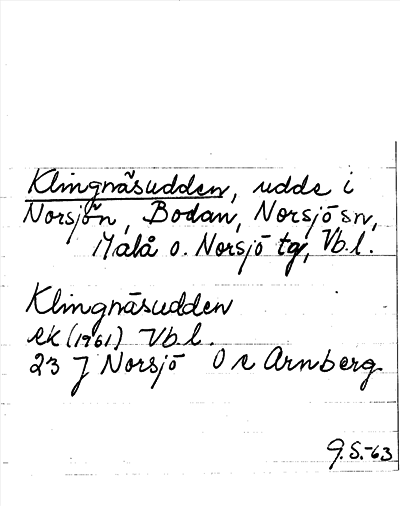 Klingnäsudden, udde i
Norsjön, Bodan, Norsjö sn,
Malå o. Norsjö tg, Vb.l.
Klingnäsudden
ek (1961) Vb l.
23 J Norsjö O r Arnberg
G.S.-63